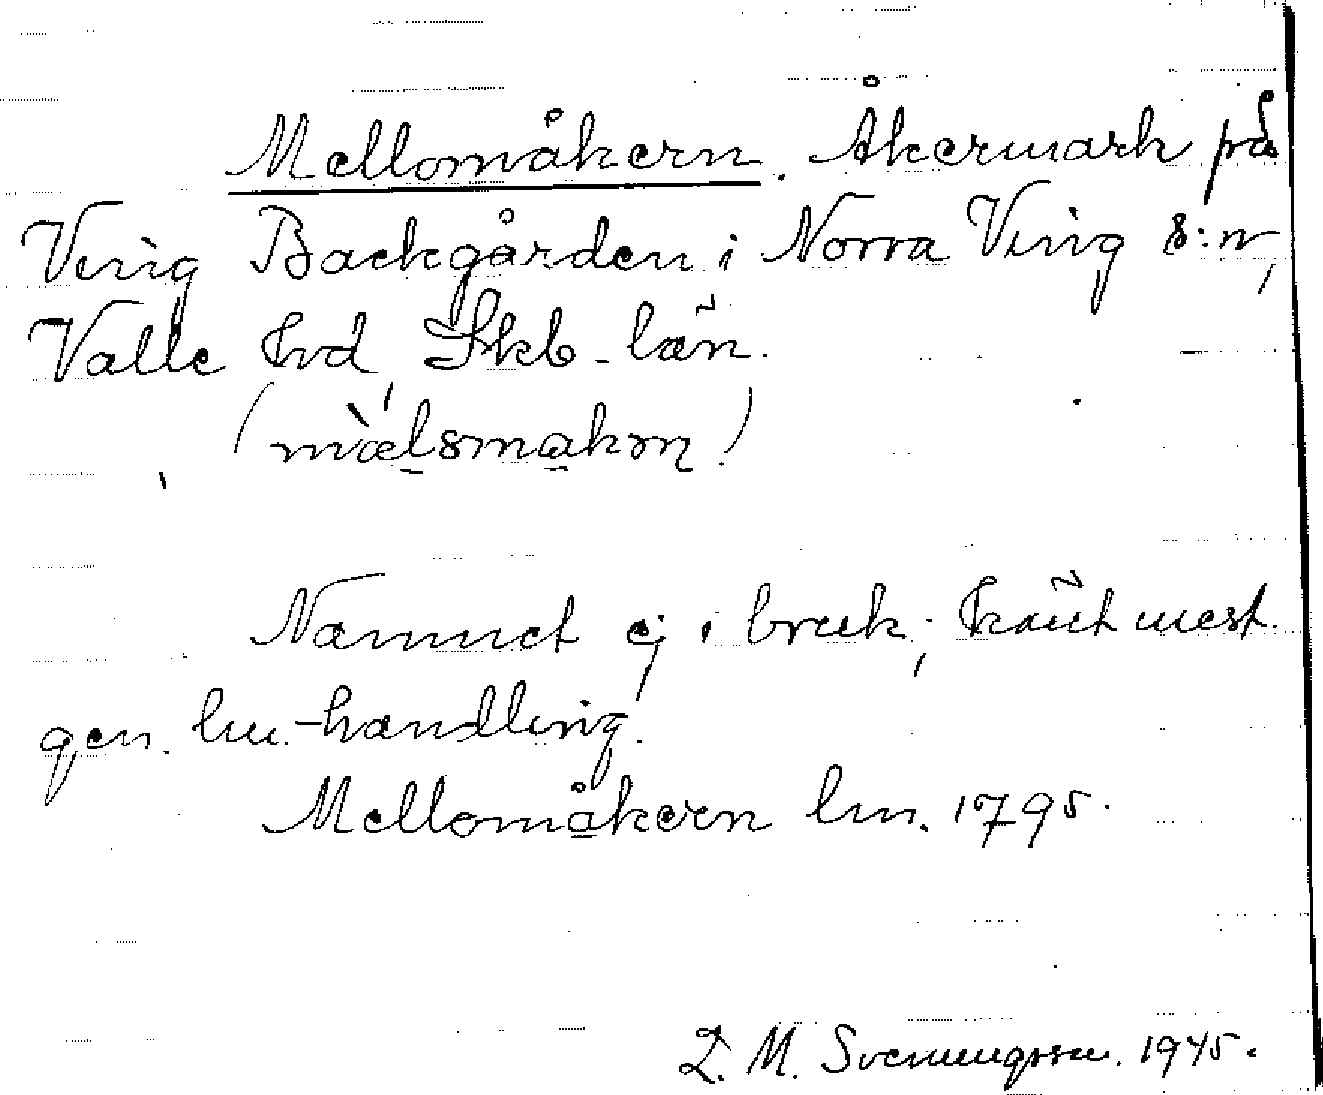 Mellomåkern. Åkermark på
Ving Backgården i Norra Ving s:n,
Valle hd, Skb. län.
(mælsmakɷn)
Namnet ej i bruk; känt mest
gen. lm.-handling.
Mellomåkern lm. 1795.
L. M. Svenungsson. 1945.